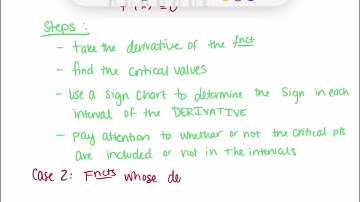 Steps:
- take the derivative of the fnct
- find the critical values
- Use a Sign Chart to determine the Sign in each
interval of the DERIVATIVE
- Pay attention to whether or not the critical pts
are included or not in the intervals
Case 2: Fncts whose de